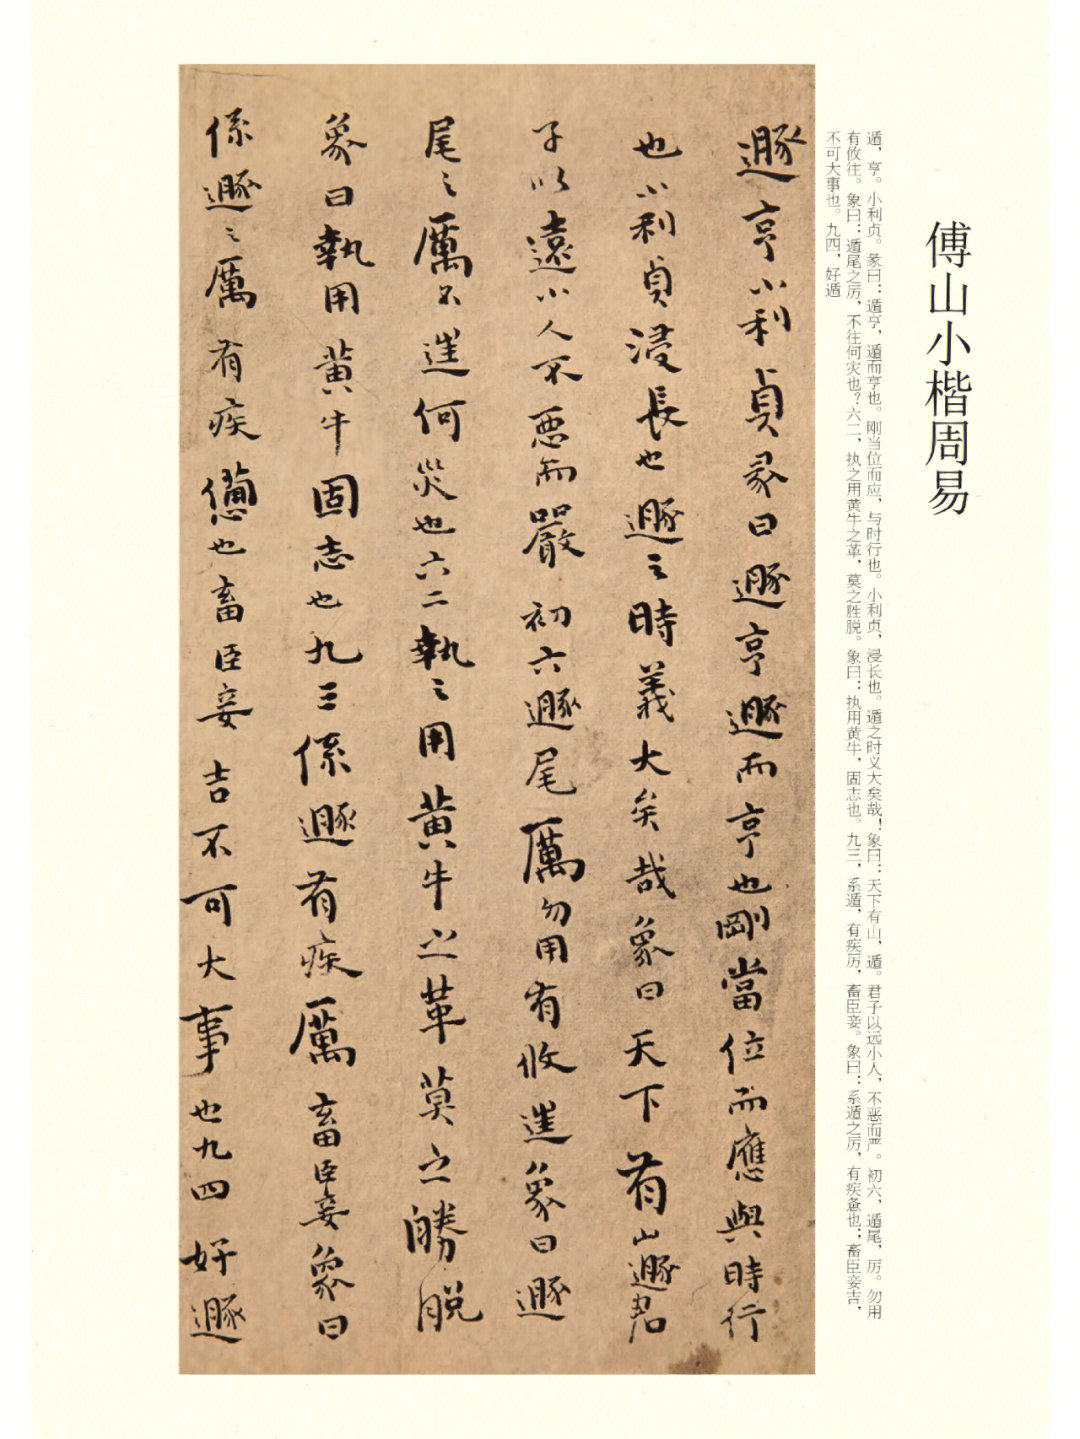 傅山小楷周易
遁，亨。小利贞。彖曰：遁亨，遁而亨也。刚当位而应，与时行也。小利贞，浸长也。遁之时义大矣哉！象曰：天下有山，遁。君子以远小人，不恶而严。初六，遁尾，厉。勿用
有攸往。象曰：遁尾之厉，不往何灾也？六二，执之用黄牛之革，莫之胜脱。象曰：执用黄牛，固志也。九三，系遁，有疾厉，畜臣妾。象曰：系遁之厉，有疾惫也；畜臣妾吉，
不可大事也。九四，好遁
遯亨小利貞彖曰遯亨遯而亨也剛當位而應與時行
也小利貞浸長也遯之時義大矣哉象曰天下有山遯君
子以遠小人不惡而嚴初六遯尾厲勿用有攸往象曰遯
尾之厲不往何災也六二執之用黄牛之革莫之勝脱
象曰執用黄牛固志也九三係遯有疾厲畜臣妾象曰
係遯之厲有疾憊也畜臣妾吉不可大事也九四好遯